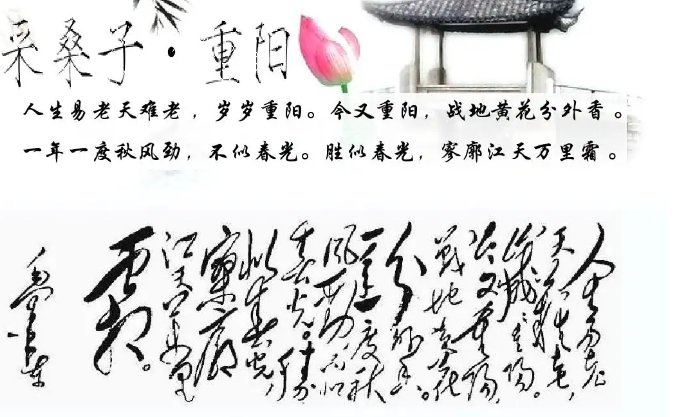 采桑子·重阳
人生易老天难老，岁岁重阳。今又重阳，战地黄花分外香。
一年一度秋风劲，不似春光。胜似春光，寥廓江天万里霜。
人生易老
天難老，
歲歲重陽。
今又重陽，
戰地黄花
分外香。
一年一度秋
風勁，不似
春光。勝
似春光，
寥廓
江天萬里
霜。
毛澤東